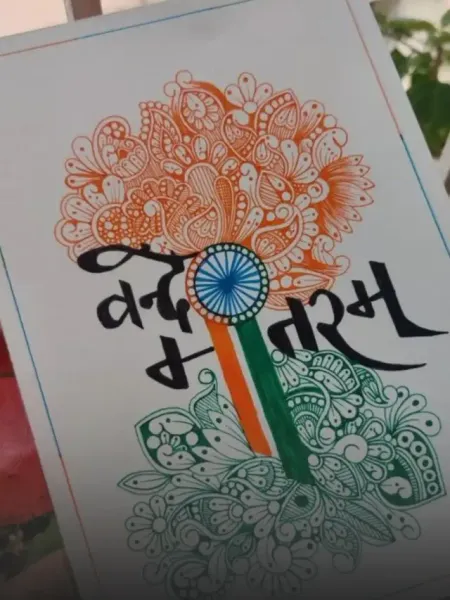 वन्दे
मातरम्